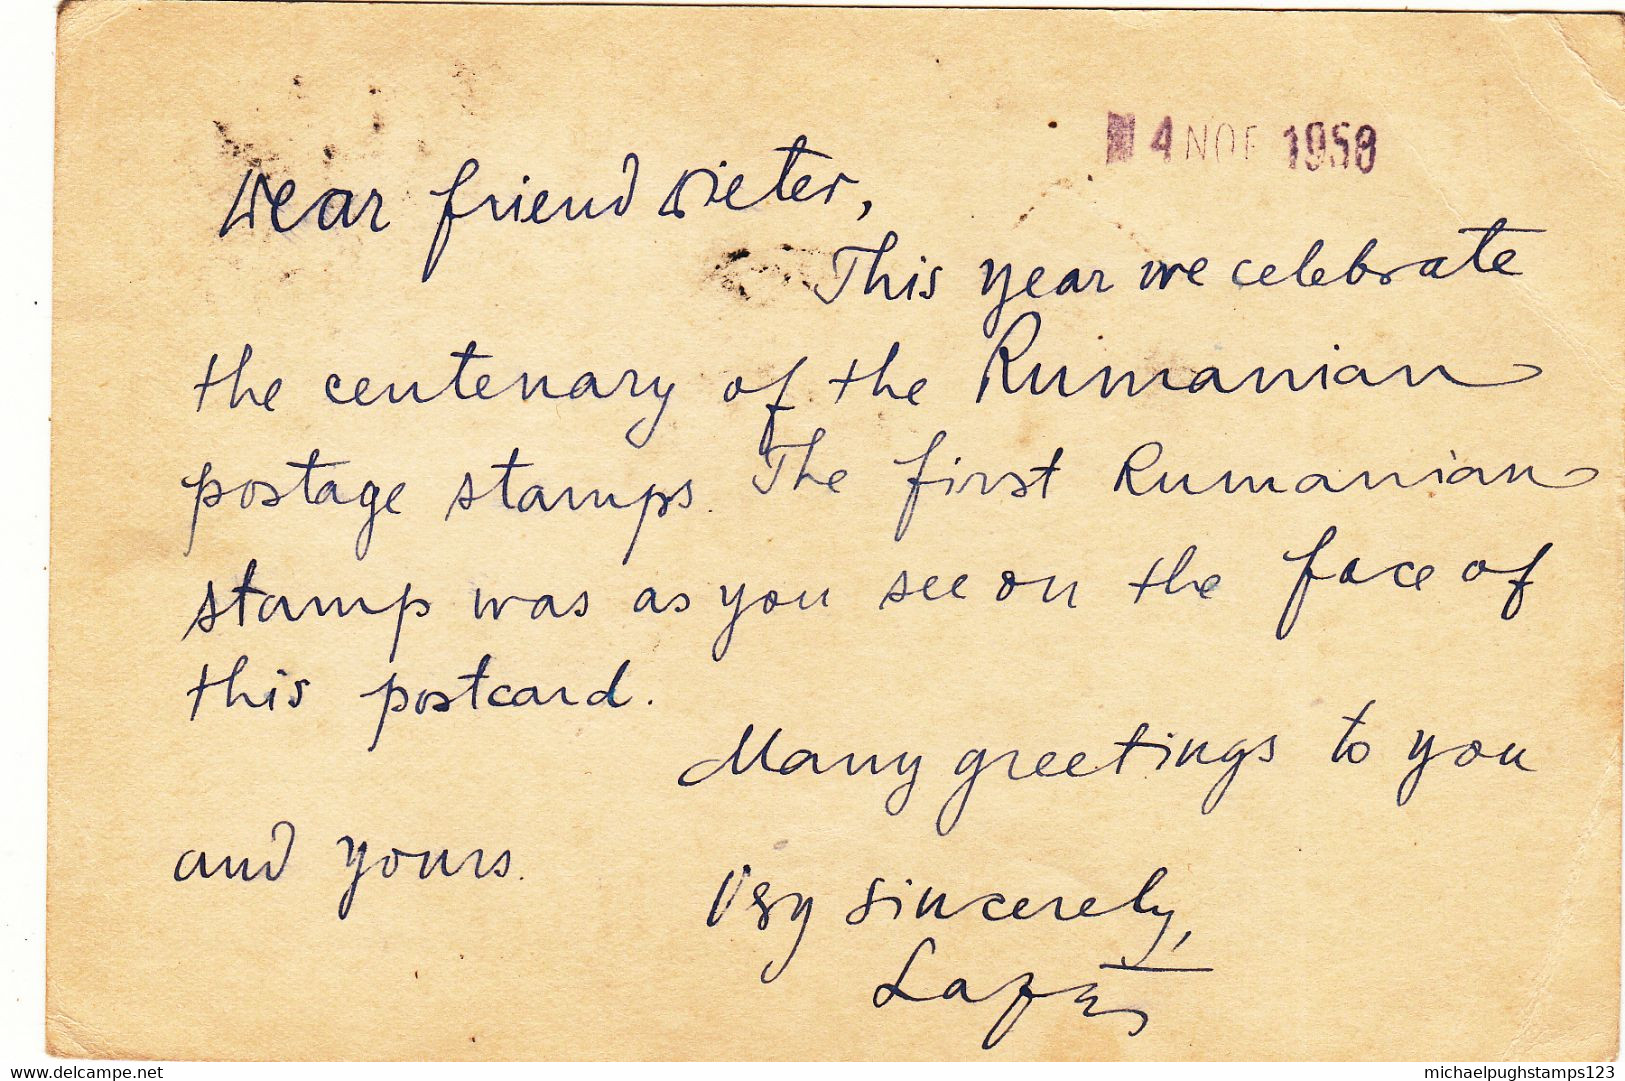 4 NOE 1958
Dear friend Dieter,
This year we celebrate
the centenary of the Rumanian
postage stamps. The first Rumanian
stamp was as you see on the face of
this postcard.
Many greetings to you
and yours.
Very sincerely,
www.delcampe.net
michaelpughstamps123